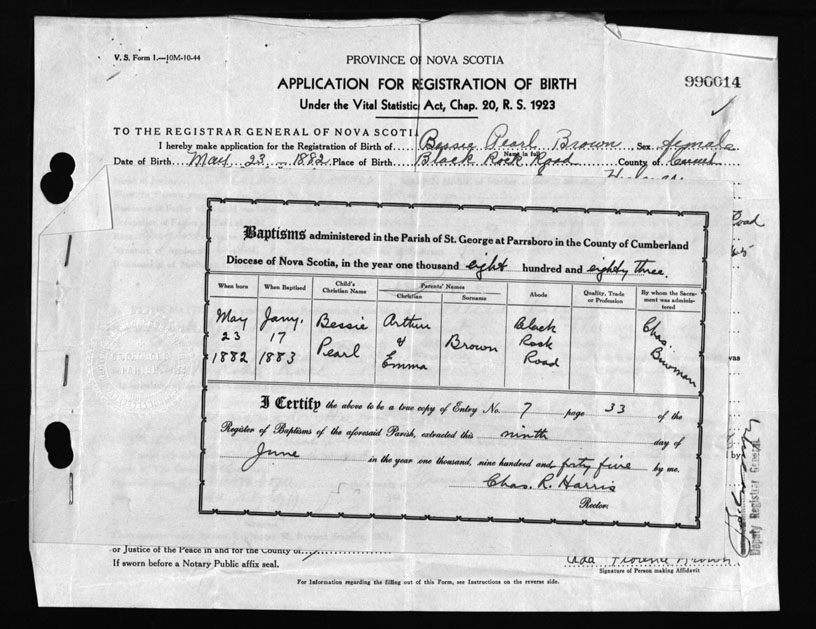 V. S. Form 1.—10M-10-44
PROVINCE OF NOVA SCOTIA
APPLICATION FOR REGISTRATION OF BIRTH
990014
Under the Vital Statistics Act, Chap. 20, R. S. 1923
TO THE REGISTRAR GENERAL OF NOVA SCOTI
I hereby make application for the Registration of Birth of Bessie Pearl Brown, Sex female
Name in full
Date of Birth May 23 - 1882 Place of Birth Black Rock Road County of
Road
Baptisms administered in the Parish of St. George at Parrsboro in the County of Cumberland
Diocese of Nova Scotia, in the year one thousand eight hundred and eighty three.
When born When Baptised Child's Christian Name Parents' Names Christian Surname Abode Quality, Trade or Profession By whom the Sacrament was administered
May Jany. Bessie Arthur Black Chas.
23 17 & Brown Rock
1882 1883 Pearl Emma Road Bowman
I Certify the above to be a true copy of Entry No. 7 page 33 of the
Register of Baptisms of the aforesaid Parish, extracted this ninth day of
June in the year one thousand, nine hundred and forty five by me.
Chas. R. Harris
Rector.
was
by
Deputy Registrar General
or Justice of the Peace in and for the County of
Ada Florence Brown
If sworn before a Notary Public affix seal.
Signature of Person making Affidavit
For Information regarding the filling out of this Form, see Instructions on the reverse side.